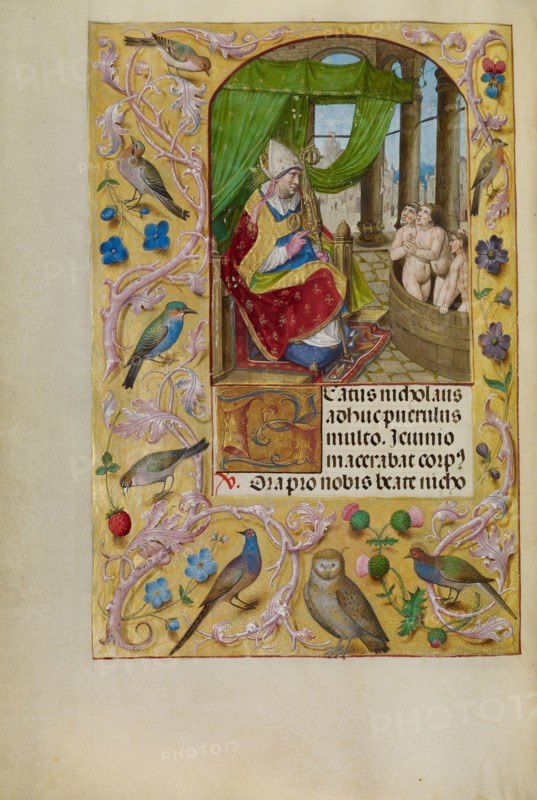 Beatus nicholaus
adhuc puerulus
multo. Jeiunio
macerabat corpꝯ
V. Ora pro nobis beate nicho
PHOTO12